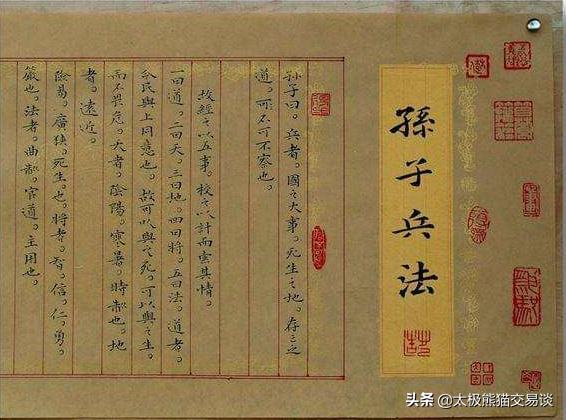 孫子兵法
孫子曰。兵者。國之大事。死生之地。存亡之
道。可不可不察也。
故經之以五事。校之以計而索其情。
一曰道。二曰天。三曰地。四曰將。五曰法。道者。
令民與上同意也。故可以與之死。可以與之生。
而不畏危。天者。陰陽。寒暑。時制也。地
者。遠近。
險易。廣狹。死生。也。將者。智。信。仁。勇。
嚴也。法者。曲制。官道。主用也。
头条 @太极熊猫交易谈